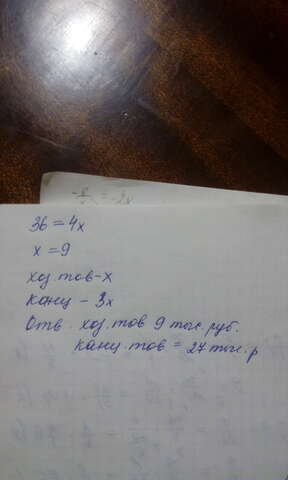 36 = 4x
x = 9
хоз. тов - x
канц - 3x
Отв. хоз. тов 9 тыс. руб.
канц. тов = 27 тыс. р